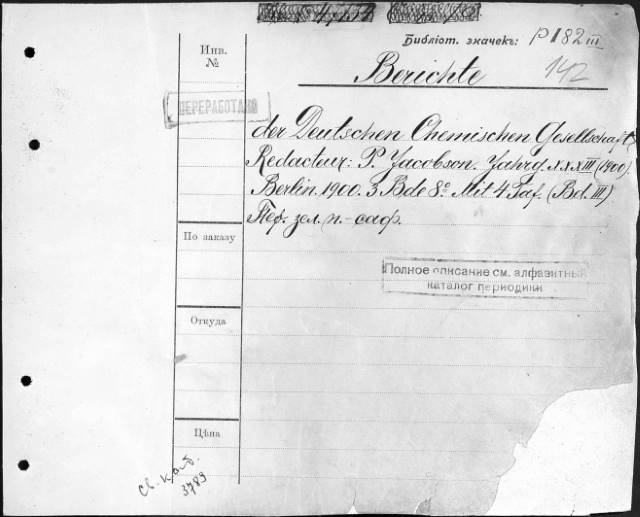 Библіот. значекъ: P 182 III
142
Инв.
№
Berichte
ПЕРЕРАБОТАНО
der Deutschen Chemischen Gesellschaft.
Redacteur: P. Jacobson. Jahrg. XXXIII (1900).
Berlin 1900. 3 Bde 8º. Mit 4 Taf. (Bd. III)
Пер. зел. п.-саф.
По заказу
Полное описание см. алфавитный
каталог периодики
Откуда
Цѣна
Св. кат.
3789